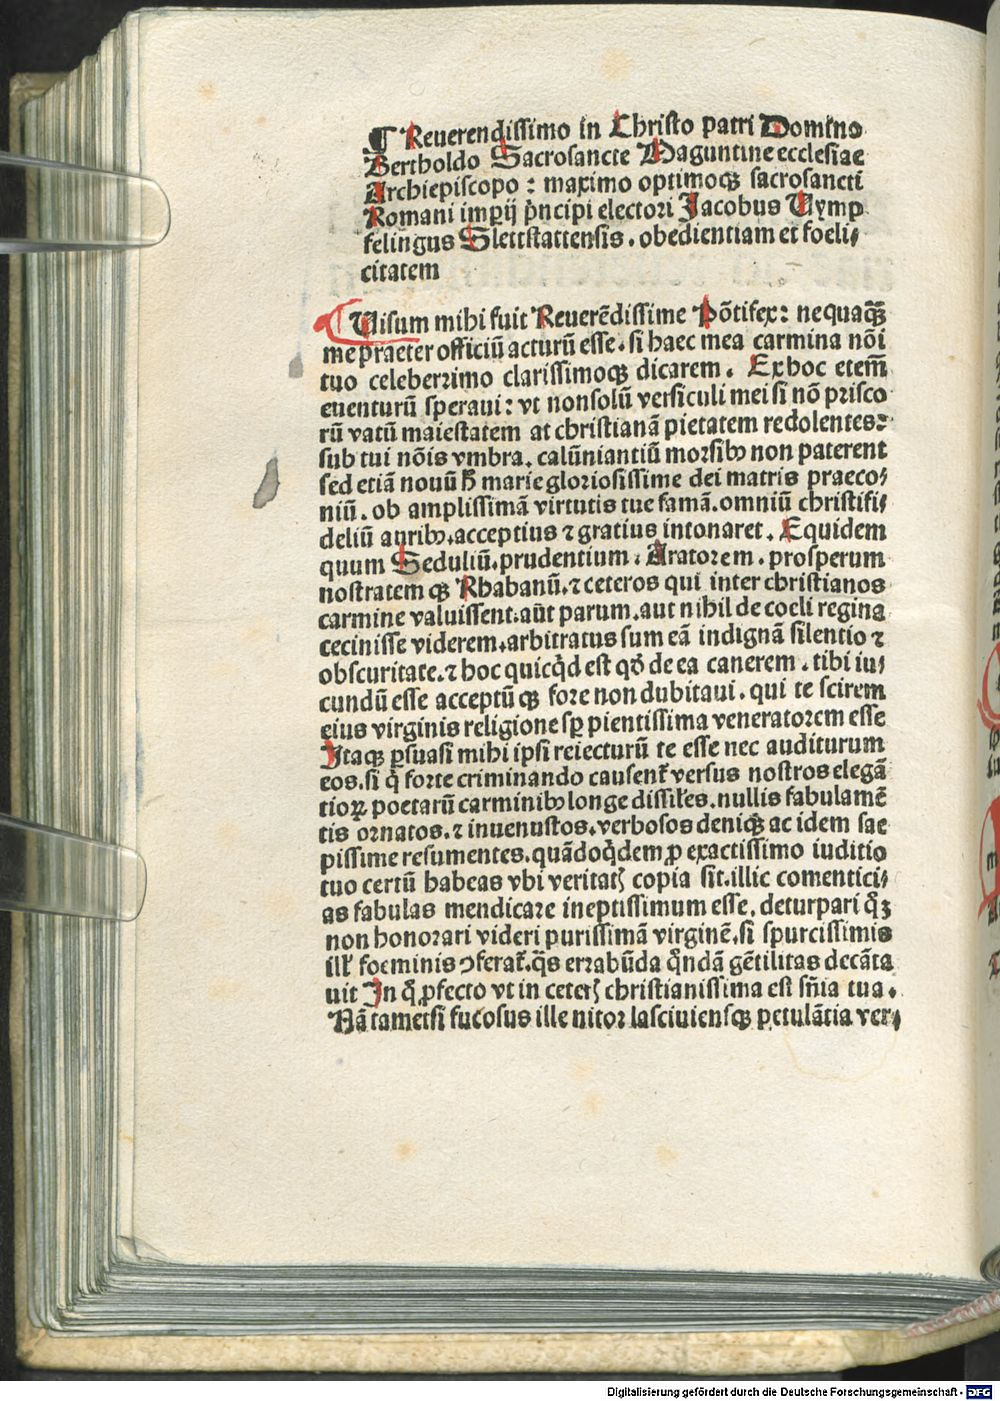 ¶ Reuerendissimo in Christo patri Domino
Bertholdo Sacrosancte Maguntine ecclesiae
Archiepiscopo : maximo optimoqȝ sacrosancti
Romani imperij pͥncipi electori Jacobus Wymp
felingus Slettstattensis . obedientiam et foeli⸗
citatem
Uisum mihi fuit Reuerēdissime Pōtifex : nequaqᷓ
me praeter officiū acturū esse . si haec mea carmina nōi
tuo celeberrimo clarissimoqȝ dicarem . Ex hoc etem̄
euenturū speraui : vt nonsolū versiculi mei si nō prisco
rū vatū maiestatem at christianā pietatem redolentes :
sub tui nōis vmbra . calūniantiū morsibꝰ non paterent
sed etiā nouū h̄ marie gloriosissime dei matris praeco⸗
niū . ob amplissimā virtutis tue famā . omniū christifi⸗
deliū auribꝰ . acceptius ⁊ gratius intonaret . Equidem
quum Seduliū . prudentium : Aratorem . prosperum
nostratem qȝ Rhabanū . ⁊ ceteros qui inter christianos
carmine valuissent . aūt parum . aut nihil de coeli regina
cecinisse viderem . arbitratus sum eā indignā silentio ⁊
obscuritate . ⁊ hoc quicqͥd est qd̓ de ea canerem . tibi iu⸗
cundū esse acceptū qȝ fore non dubitaui . qui te scirem
eius virginis religione sꝑ pientissima veneratorem esse
Itaqȝ ꝑsuasi mihi ipsi reiecturū te esse nec auditurum
eos . si qͥ forte criminando causent᷑ versus nostros elegā
tioꝝ poetarū carminibꝰ longe dissił̓es . nullis fabulamē
tis ornatos . ⁊ inuenustos . verbosos deniqȝ ac idem sae
pissime resumentes . quādoqͥdem ꝓ exactissimo iuditio
tuo certū habeas vbi veritatꝭ copia sit . illic comentici⸗
as fabulas mendicare ineptissimum esse . deturpari qͦȝ
non honorari videri purissimā virginē . si spurcissimis
ill̓ foeminis ↄferat᷑ . qᷓs errabūda qͦndā gētilitas decāta
uit In qͦ ꝓfecto vt in ceterꝭ christianissima est sn̄ia tua .
Nā tametsi fucosus ille nitor lasciuiensqȝ petulātia ver⸗
Digitalisierung gefördert durch die Deutsche Forschungsgemeinschaft - DFG